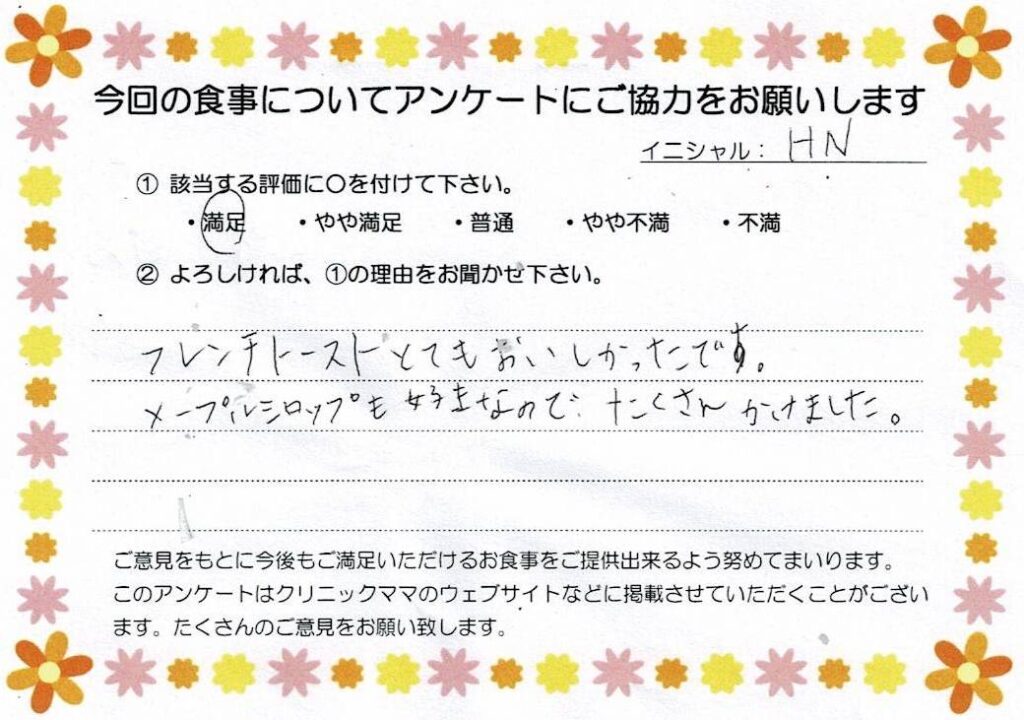 今回の食事についてアンケートにご協力をお願いします
イニシャル： HN
① 該当する評価に〇を付けて下さい。
・満足 ・やや満足 ・普通 ・やや不満 ・不満
② よろしければ、①の理由をお聞かせ下さい。
フレンチトーストとてもおいしかったです。
メープルシロップも好きなので、たくさんかけました。
ご意見をもとに今後もご満足いただけるお食事をご提供出来るよう努めてまいります。
このアンケートはクリニックママのウェブサイトなどに掲載させていただくことがござい
ます。たくさんのご意見をお願い致します。